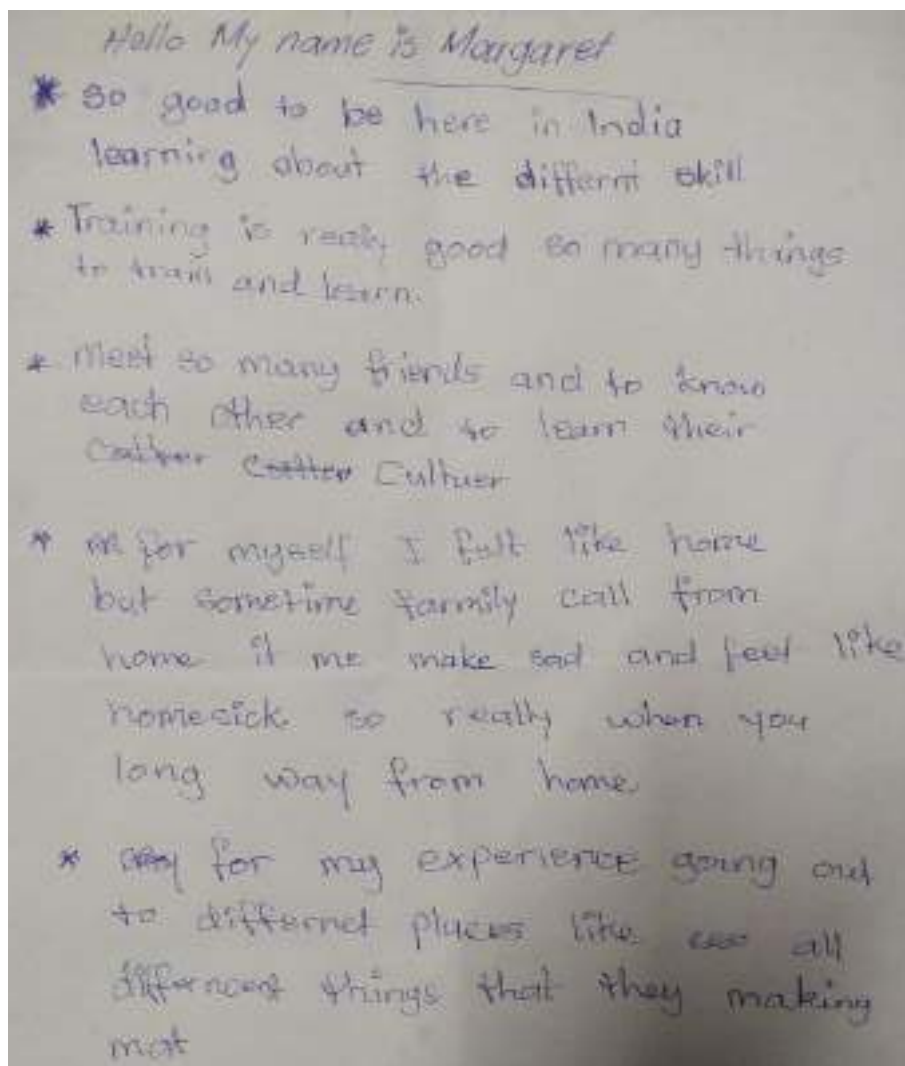 Hello My name is Margaret
* so good to be here in India
learning about the differnt skill
* Training is realy good so many things
to train and learn.
* meet so many friends and to know
each other and to learn their
Cultuer
* for myself I felt like home
but sometime farmily call from
home it me make sad and feel like
homesick so really when you
long way from home
* for my experience going out
to differnet places like all
differncent things that they making
mat